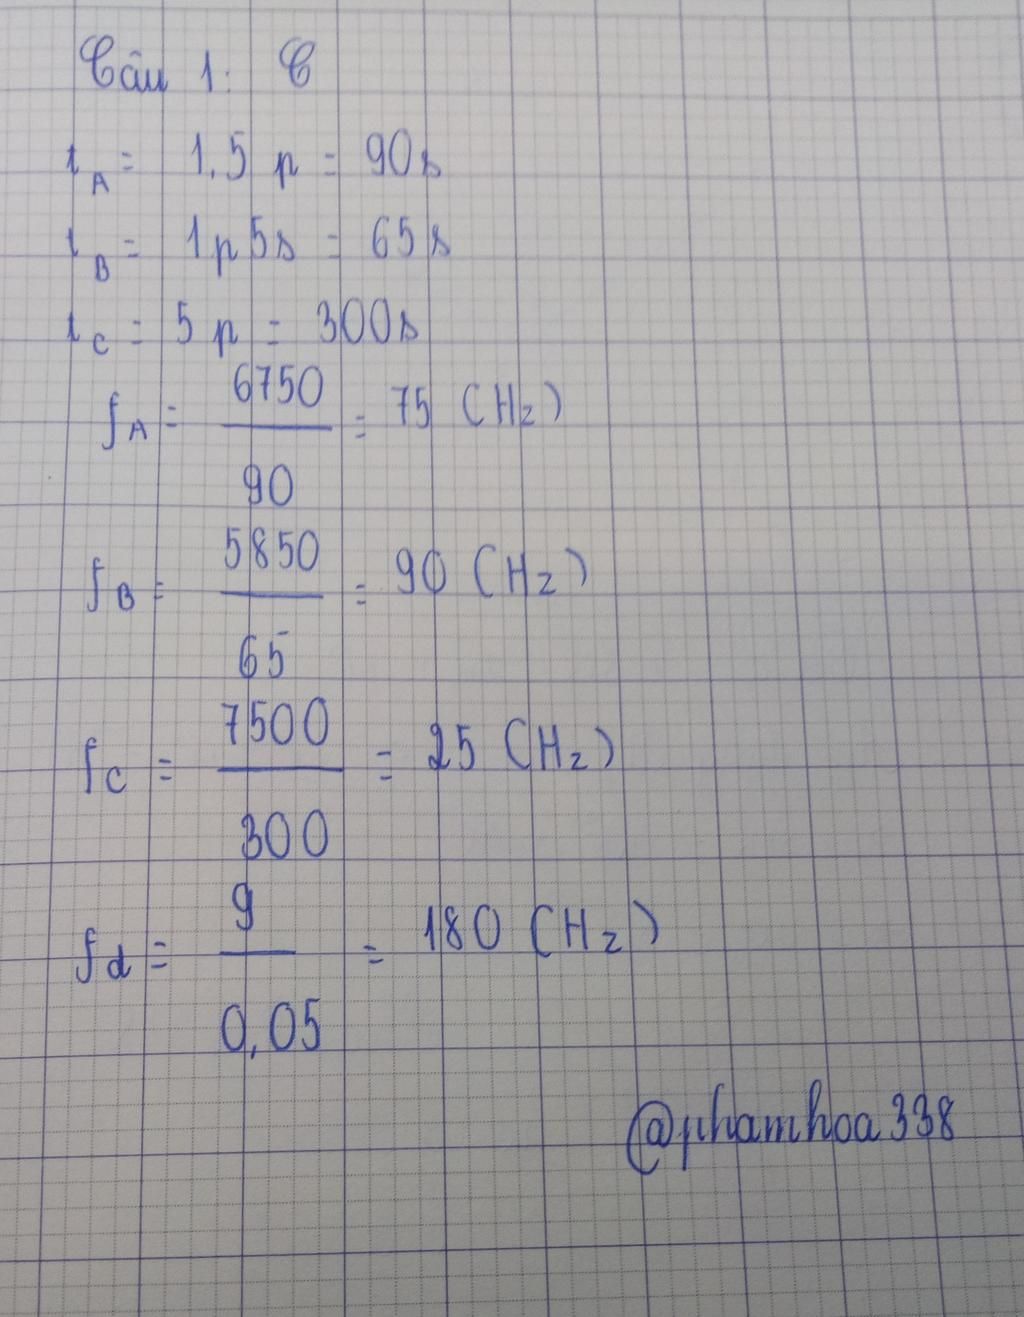 Câu 1: C
t_A = 1,5 p = 90s
t_B = 1p5s = 65s
t_C = 5 p = 300s
f_A = 6750/90 = 75 (Hz)
f_B = 5850/65 = 90 (Hz)
f_C = 7500/300 = 25 (Hz)
f_d = 9/0,05 = 180 (Hz)
@phamhoa338